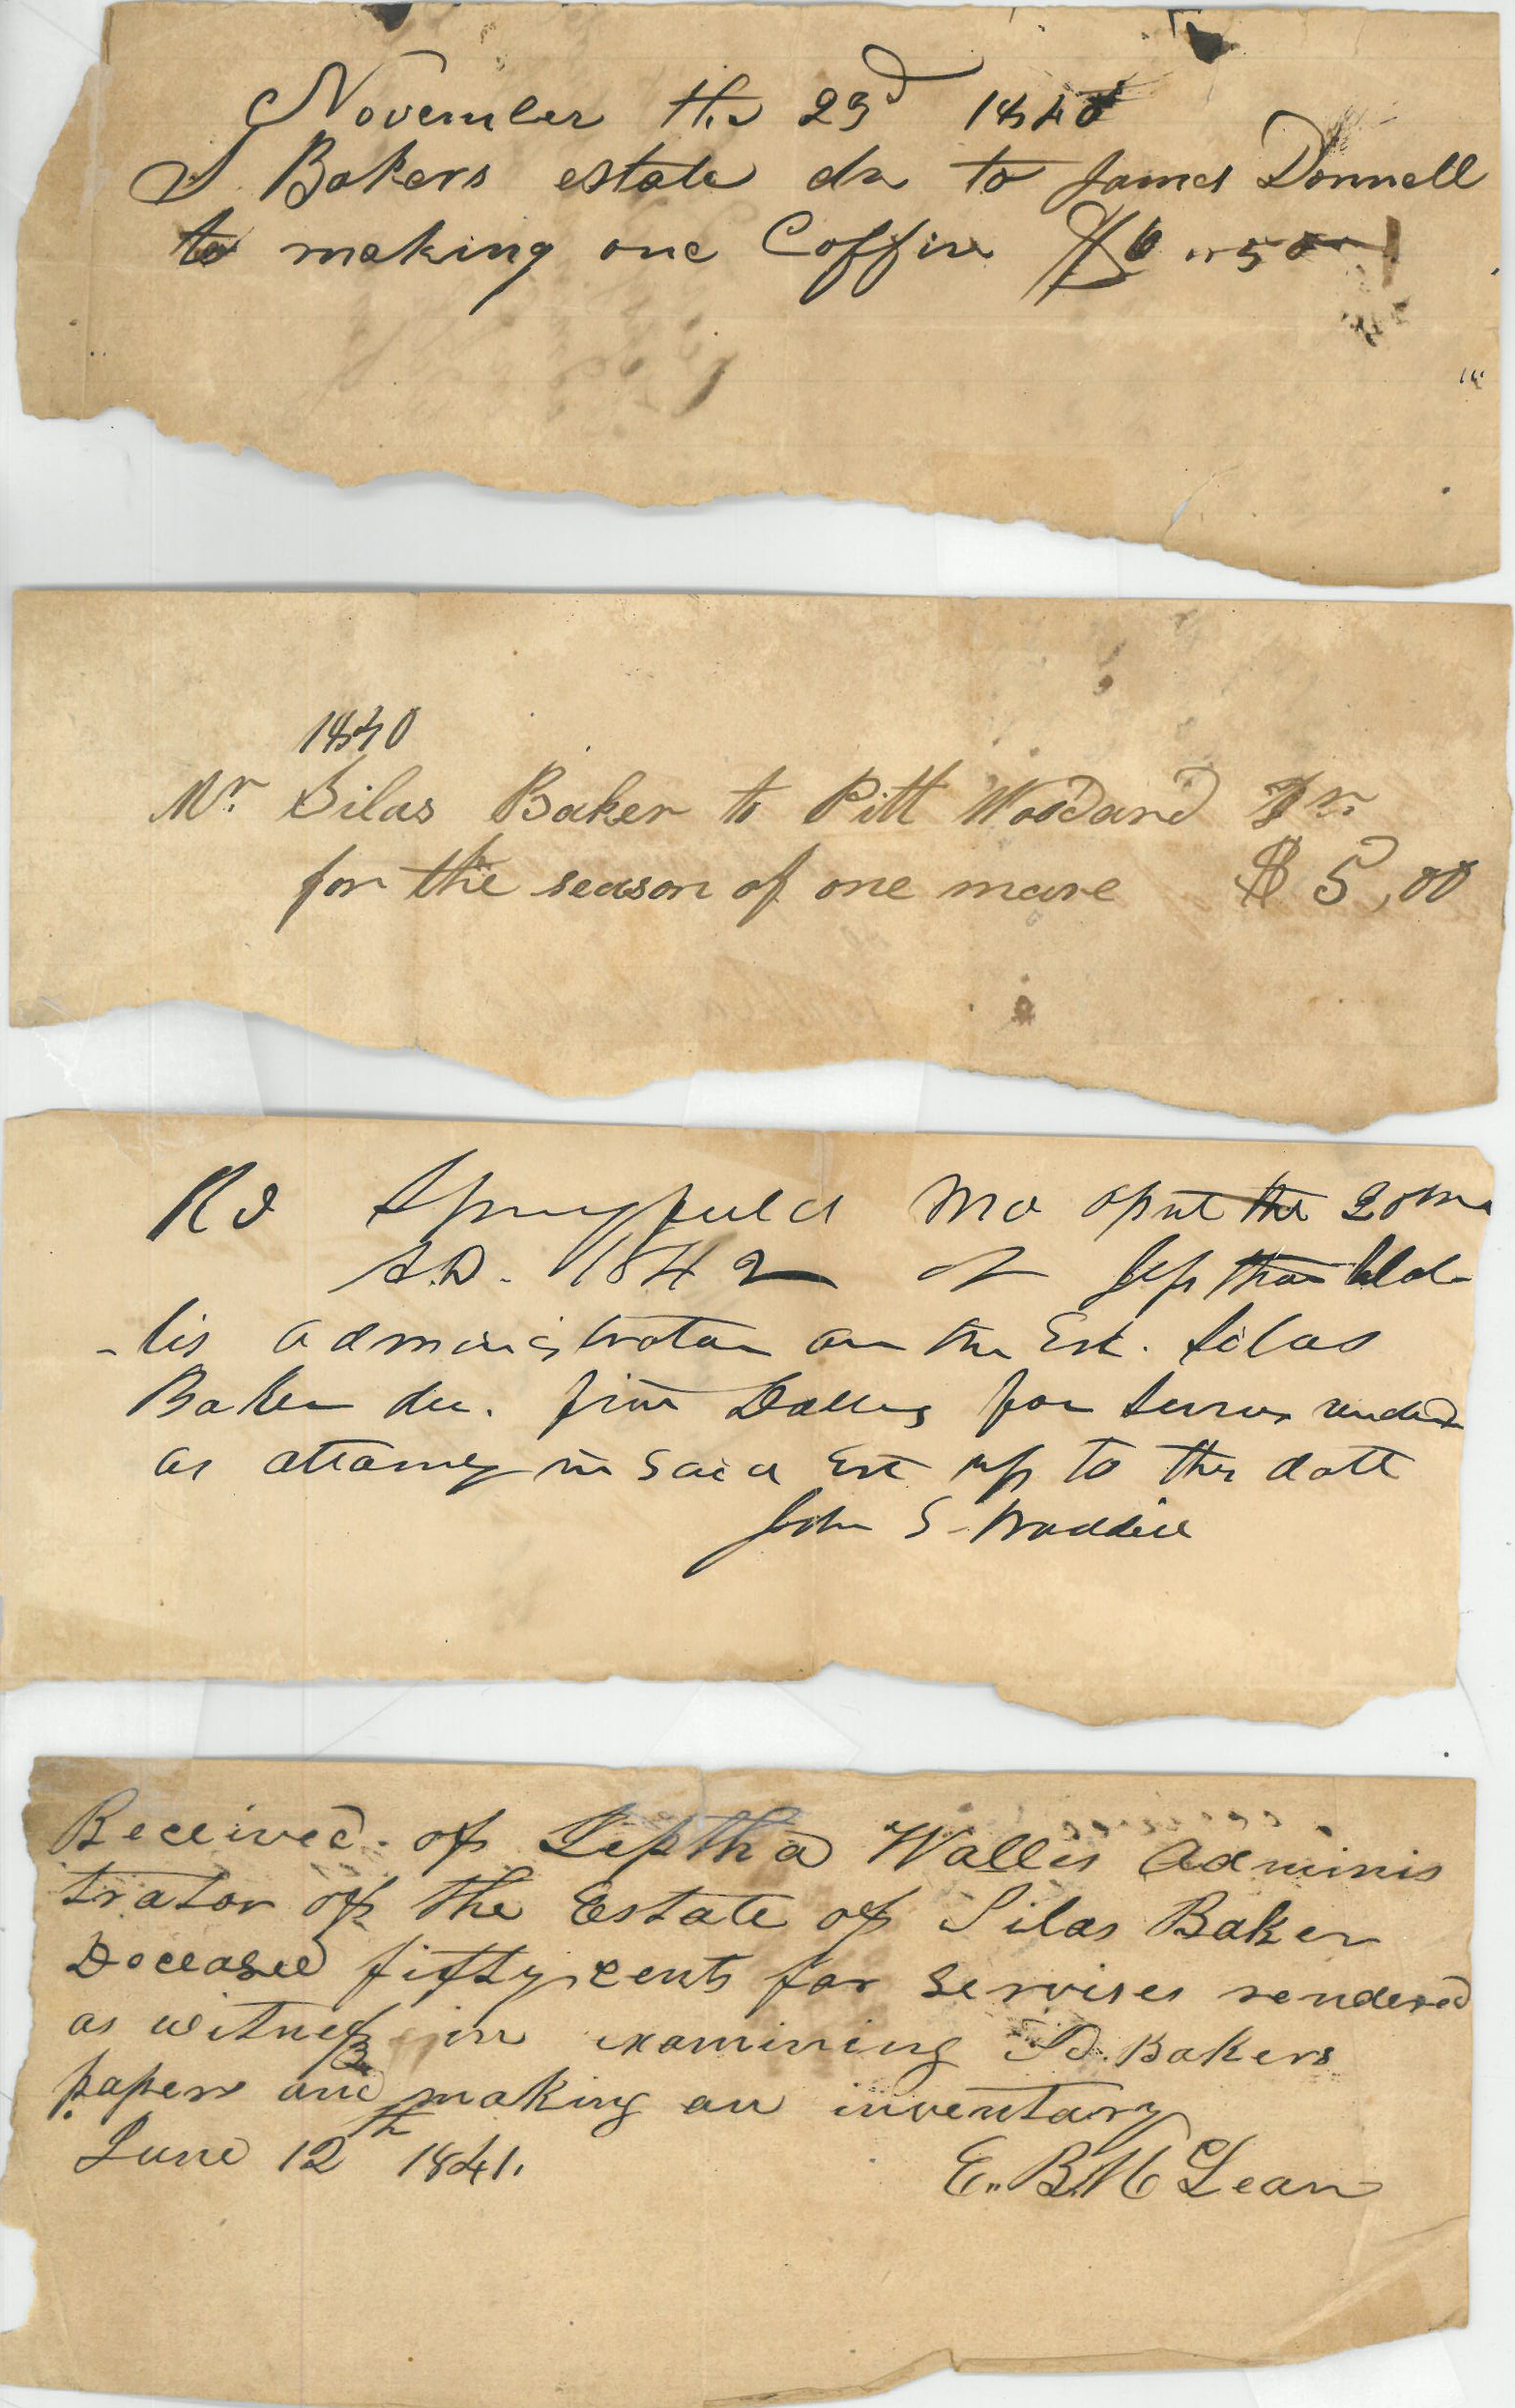 November the 23d 1840
S Bakers estate dr to James Donnell
to making one Coffin $6 .. 50
1840
Mr. Silas Baker to Pitt Woodard Dr.
for the season of one mare $5,00
Rd Springfield Mo April the 20
A.D. 1842 of Jeptha Wal
-lis administrator on the Est. Silas
Baker dec. five Dollars for servises rendered
as attorney in Said Est up to this date
John S. Waddill
Received of Jeptha Wallis Adminis
trator of the Estate of Silas Baker
Deceased fifty cents for servises rendered
as witness in examining Sd. Bakers
papers and making an inventary
June 12th 1841.
E.. B. Mc Lean